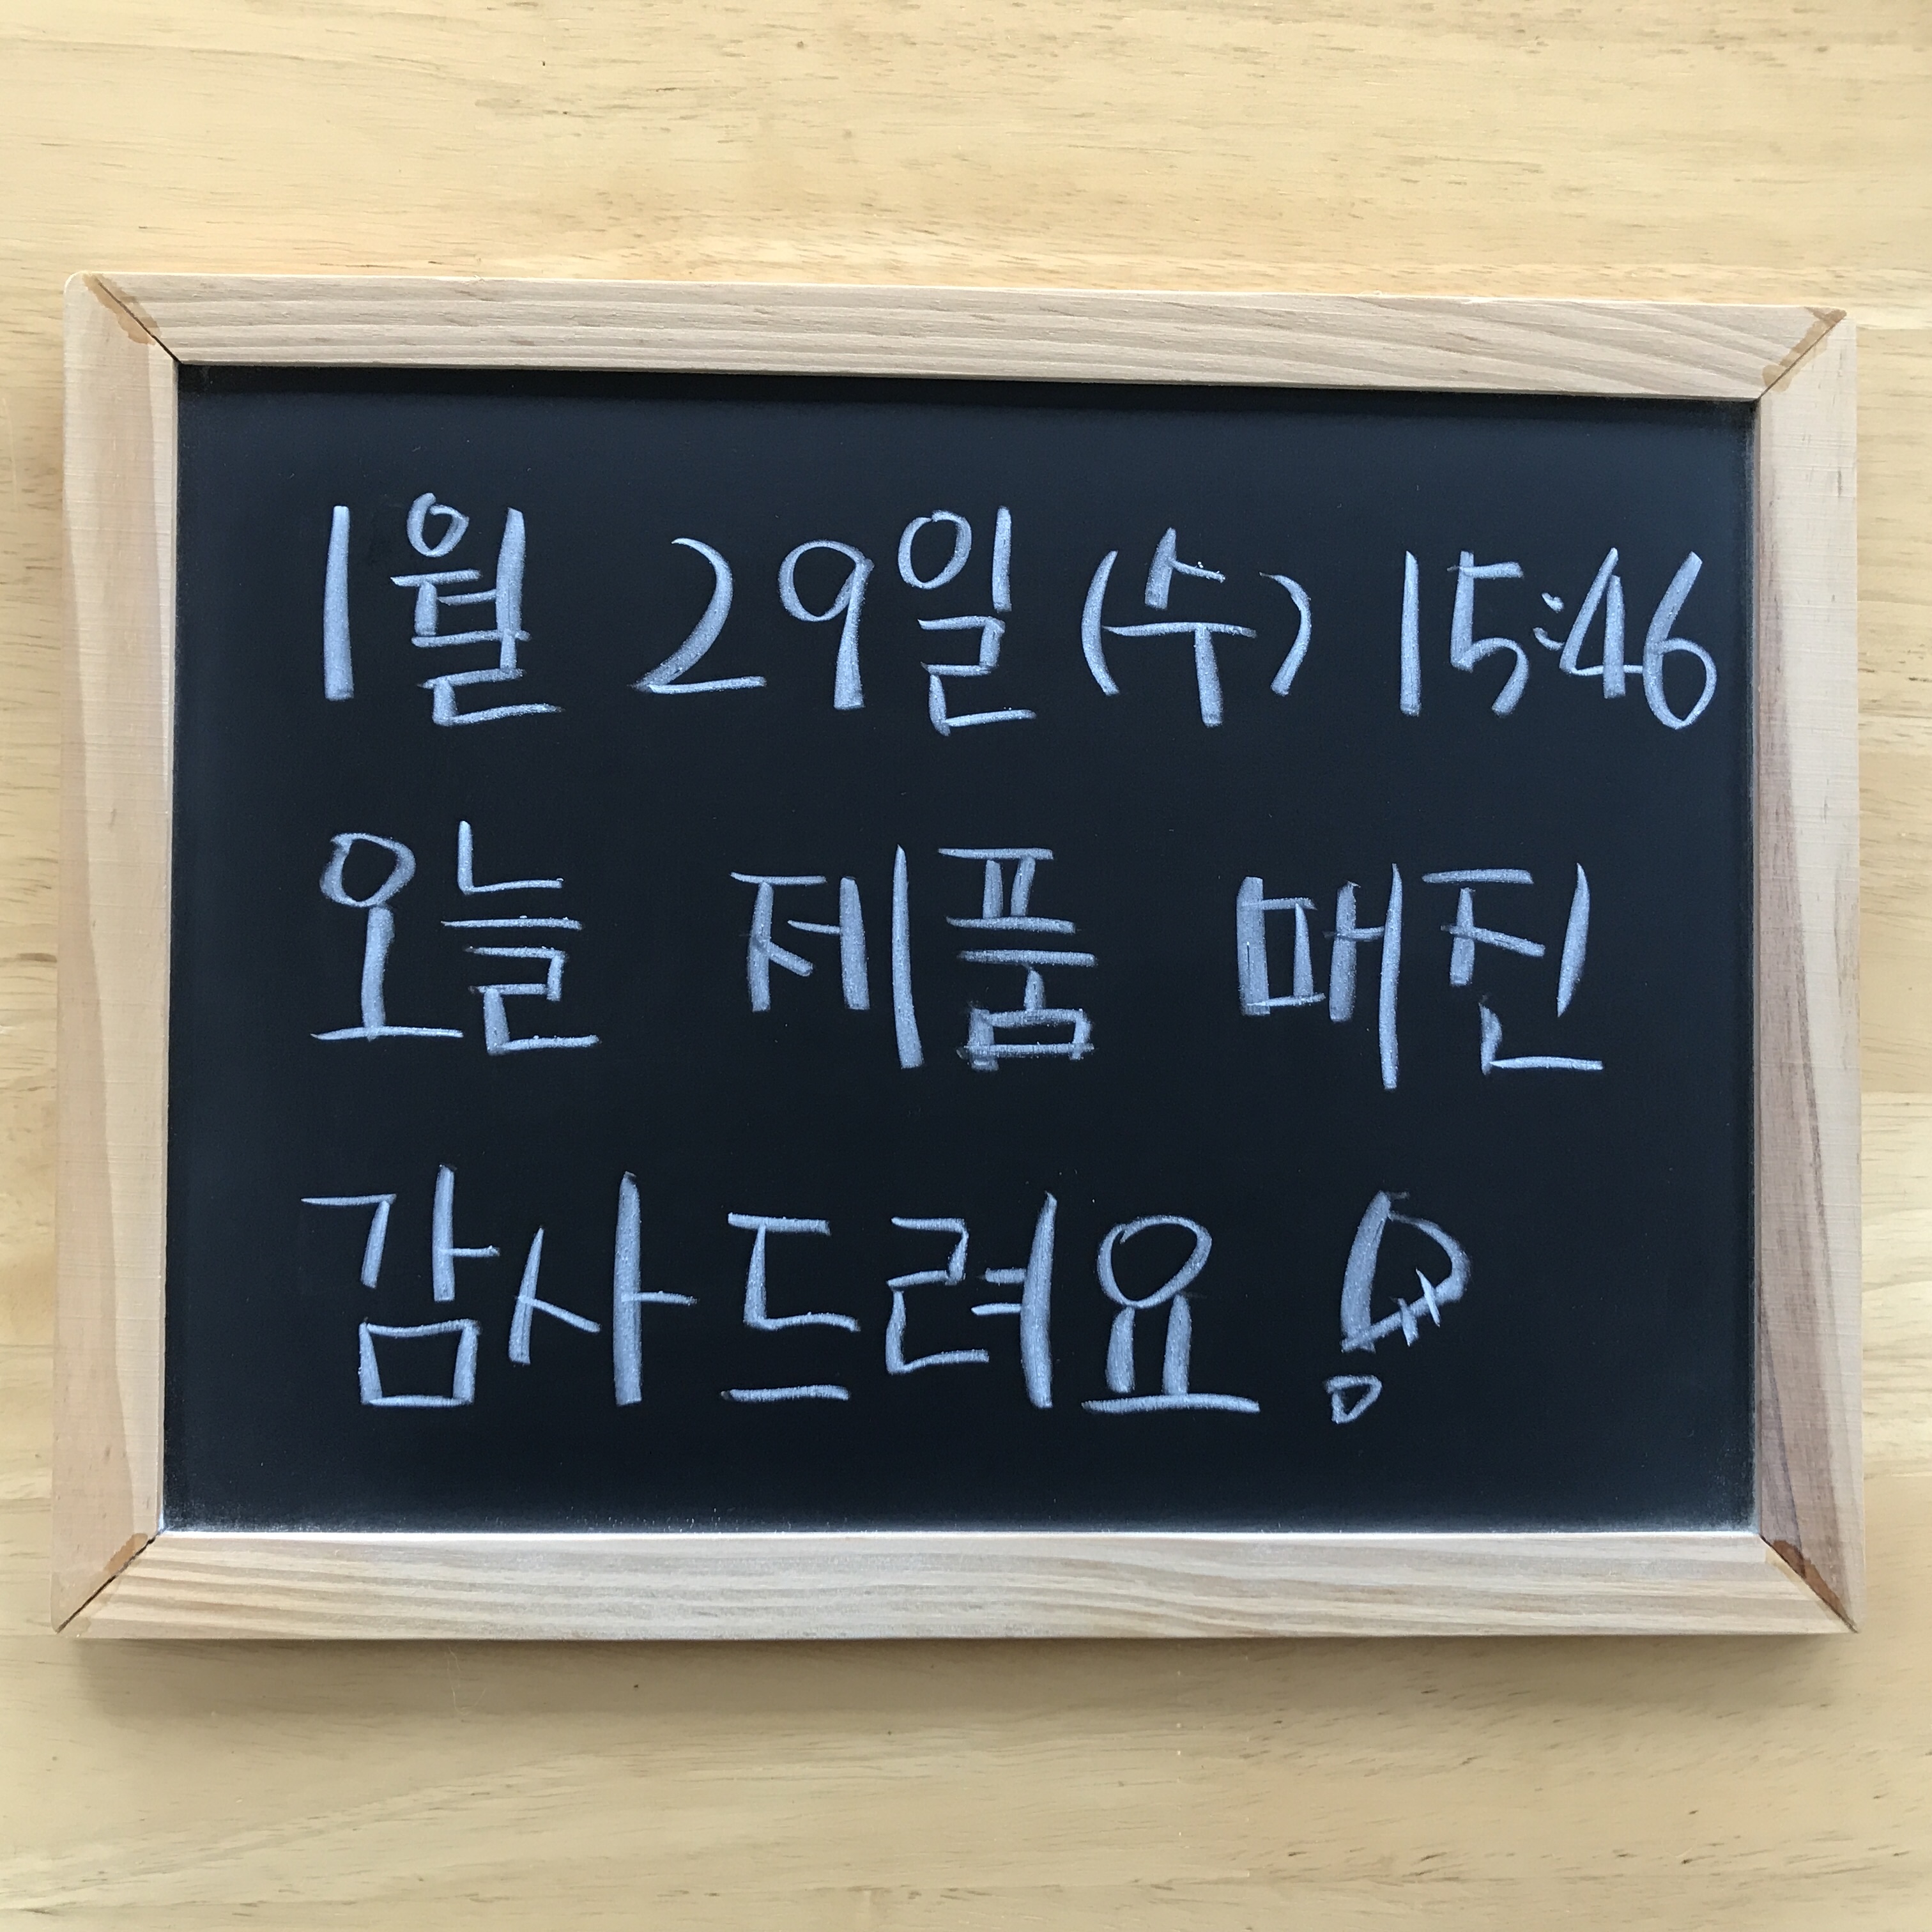 1월 29일 (수) 15:46
오늘 제품 매진
감사드려요 !